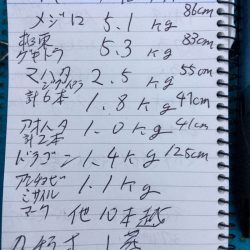 メジロ 5.1kg 86cm
5.3kg 83cm
マハタ 2.5kg 55cm
計6本 1.8kg 41cm
アオハタ 1.0kg 41cm
計2本
ドラゴン 1.4kg 125cm
1.1kg
ミサイル
マーク 他10本越